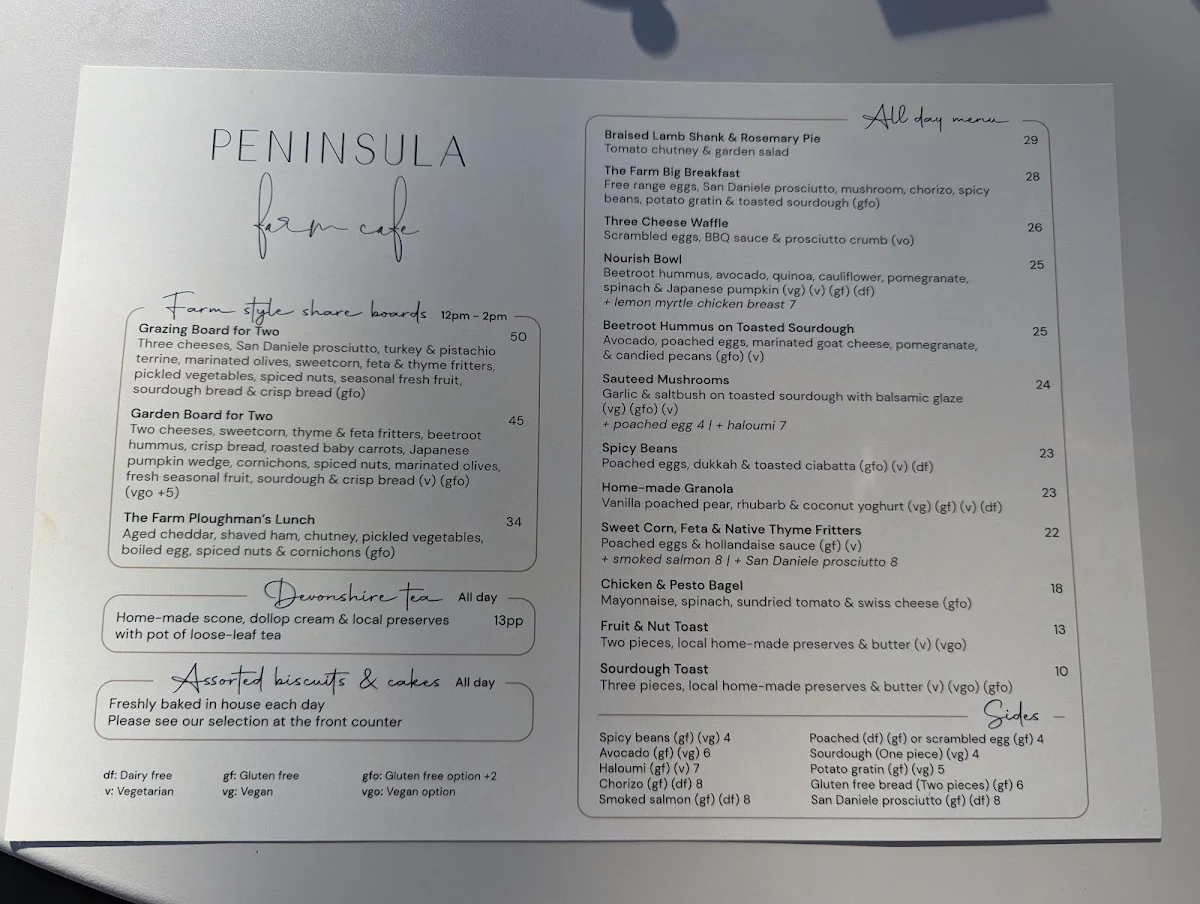 PENINSULA
farm cafe
Farm style share boards 12pm - 2pm
Grazing Board for Two 50
Three cheeses, San Daniele prosciutto, turkey & pistachio
terrine, marinated olives, sweetcorn, feta & thyme fritters,
pickled vegetables, spiced nuts, seasonal fresh fruit,
sourdough bread & crisp bread (gfo)
Garden Board for Two 45
Two cheeses, sweetcorn, thyme & feta fritters, beetroot
hummus, crisp bread, roasted baby carrots, Japanese
pumpkin wedge, cornichons, spiced nuts, marinated olives,
fresh seasonal fruit, sourdough & crisp bread (v) (gfo)
(vgo +5)
The Farm Ploughman's Lunch 34
Aged cheddar, shaved ham, chutney, pickled vegetables,
boiled egg, spiced nuts & cornichons (gfo)
Devonshire tea All day
Home-made scone, dollop cream & local preserves 13pp
with pot of loose-leaf tea
Assorted biscuits & cakes All day
Freshly baked in house each day
Please see our selection at the front counter
df: Dairy free gf: Gluten free gfo: Gluten free option +2
v: Vegetarian vg: Vegan vgo: Vegan option
All day menu
Braised Lamb Shank & Rosemary Pie 29
Tomato chutney & garden salad
The Farm Big Breakfast 28
Free range eggs, San Daniele prosciutto, mushroom, chorizo, spicy
beans, potato gratin & toasted sourdough (gfo)
Three Cheese Waffle 26
Scrambled eggs, BBQ sauce & prosciutto crumb (vo)
Nourish Bowl 25
Beetroot hummus, avocado, quinoa, cauliflower, pomegranate,
spinach & Japanese pumpkin (vg) (v) (gf) (df)
+ lemon myrtle chicken breast 7
Beetroot Hummus on Toasted Sourdough 25
Avocado, poached eggs, marinated goat cheese, pomegranate,
& candied pecans (gfo) (v)
Sauteed Mushrooms 24
Garlic & saltbush on toasted sourdough with balsamic glaze
(vg) (gfo) (v)
+ poached egg 4 | + haloumi 7
Spicy Beans 23
Poached eggs, dukkah & toasted ciabatta (gfo) (v) (df)
Home-made Granola 23
Vanilla poached pear, rhubarb & coconut yoghurt (vg) (gf) (v) (df)
Sweet Corn, Feta & Native Thyme Fritters 22
Poached eggs & hollandaise sauce (gf) (v)
+ smoked salmon 8 | + San Daniele prosciutto 8
Chicken & Pesto Bagel 18
Mayonnaise, spinach, sundried tomato & swiss cheese (gfo)
Fruit & Nut Toast 13
Two pieces, local home-made preserves & butter (v) (vgo)
Sourdough Toast 10
Three pieces, local home-made preserves & butter (v) (vgo) (gfo)
Sides
Spicy beans (gf) (vg) 4
Avocado (gf) (vg) 6
Haloumi (gf) (v) 7
Chorizo (gf) (df) 8
Smoked salmon (gf) (df) 8
Poached (df) (gf) or scrambled egg (gf) 4
Sourdough (One piece) (vg) 4
Potato gratin (gf) (vg) 5
Gluten free bread (Two pieces) (gf) 6
San Daniele prosciutto (gf) (df) 8